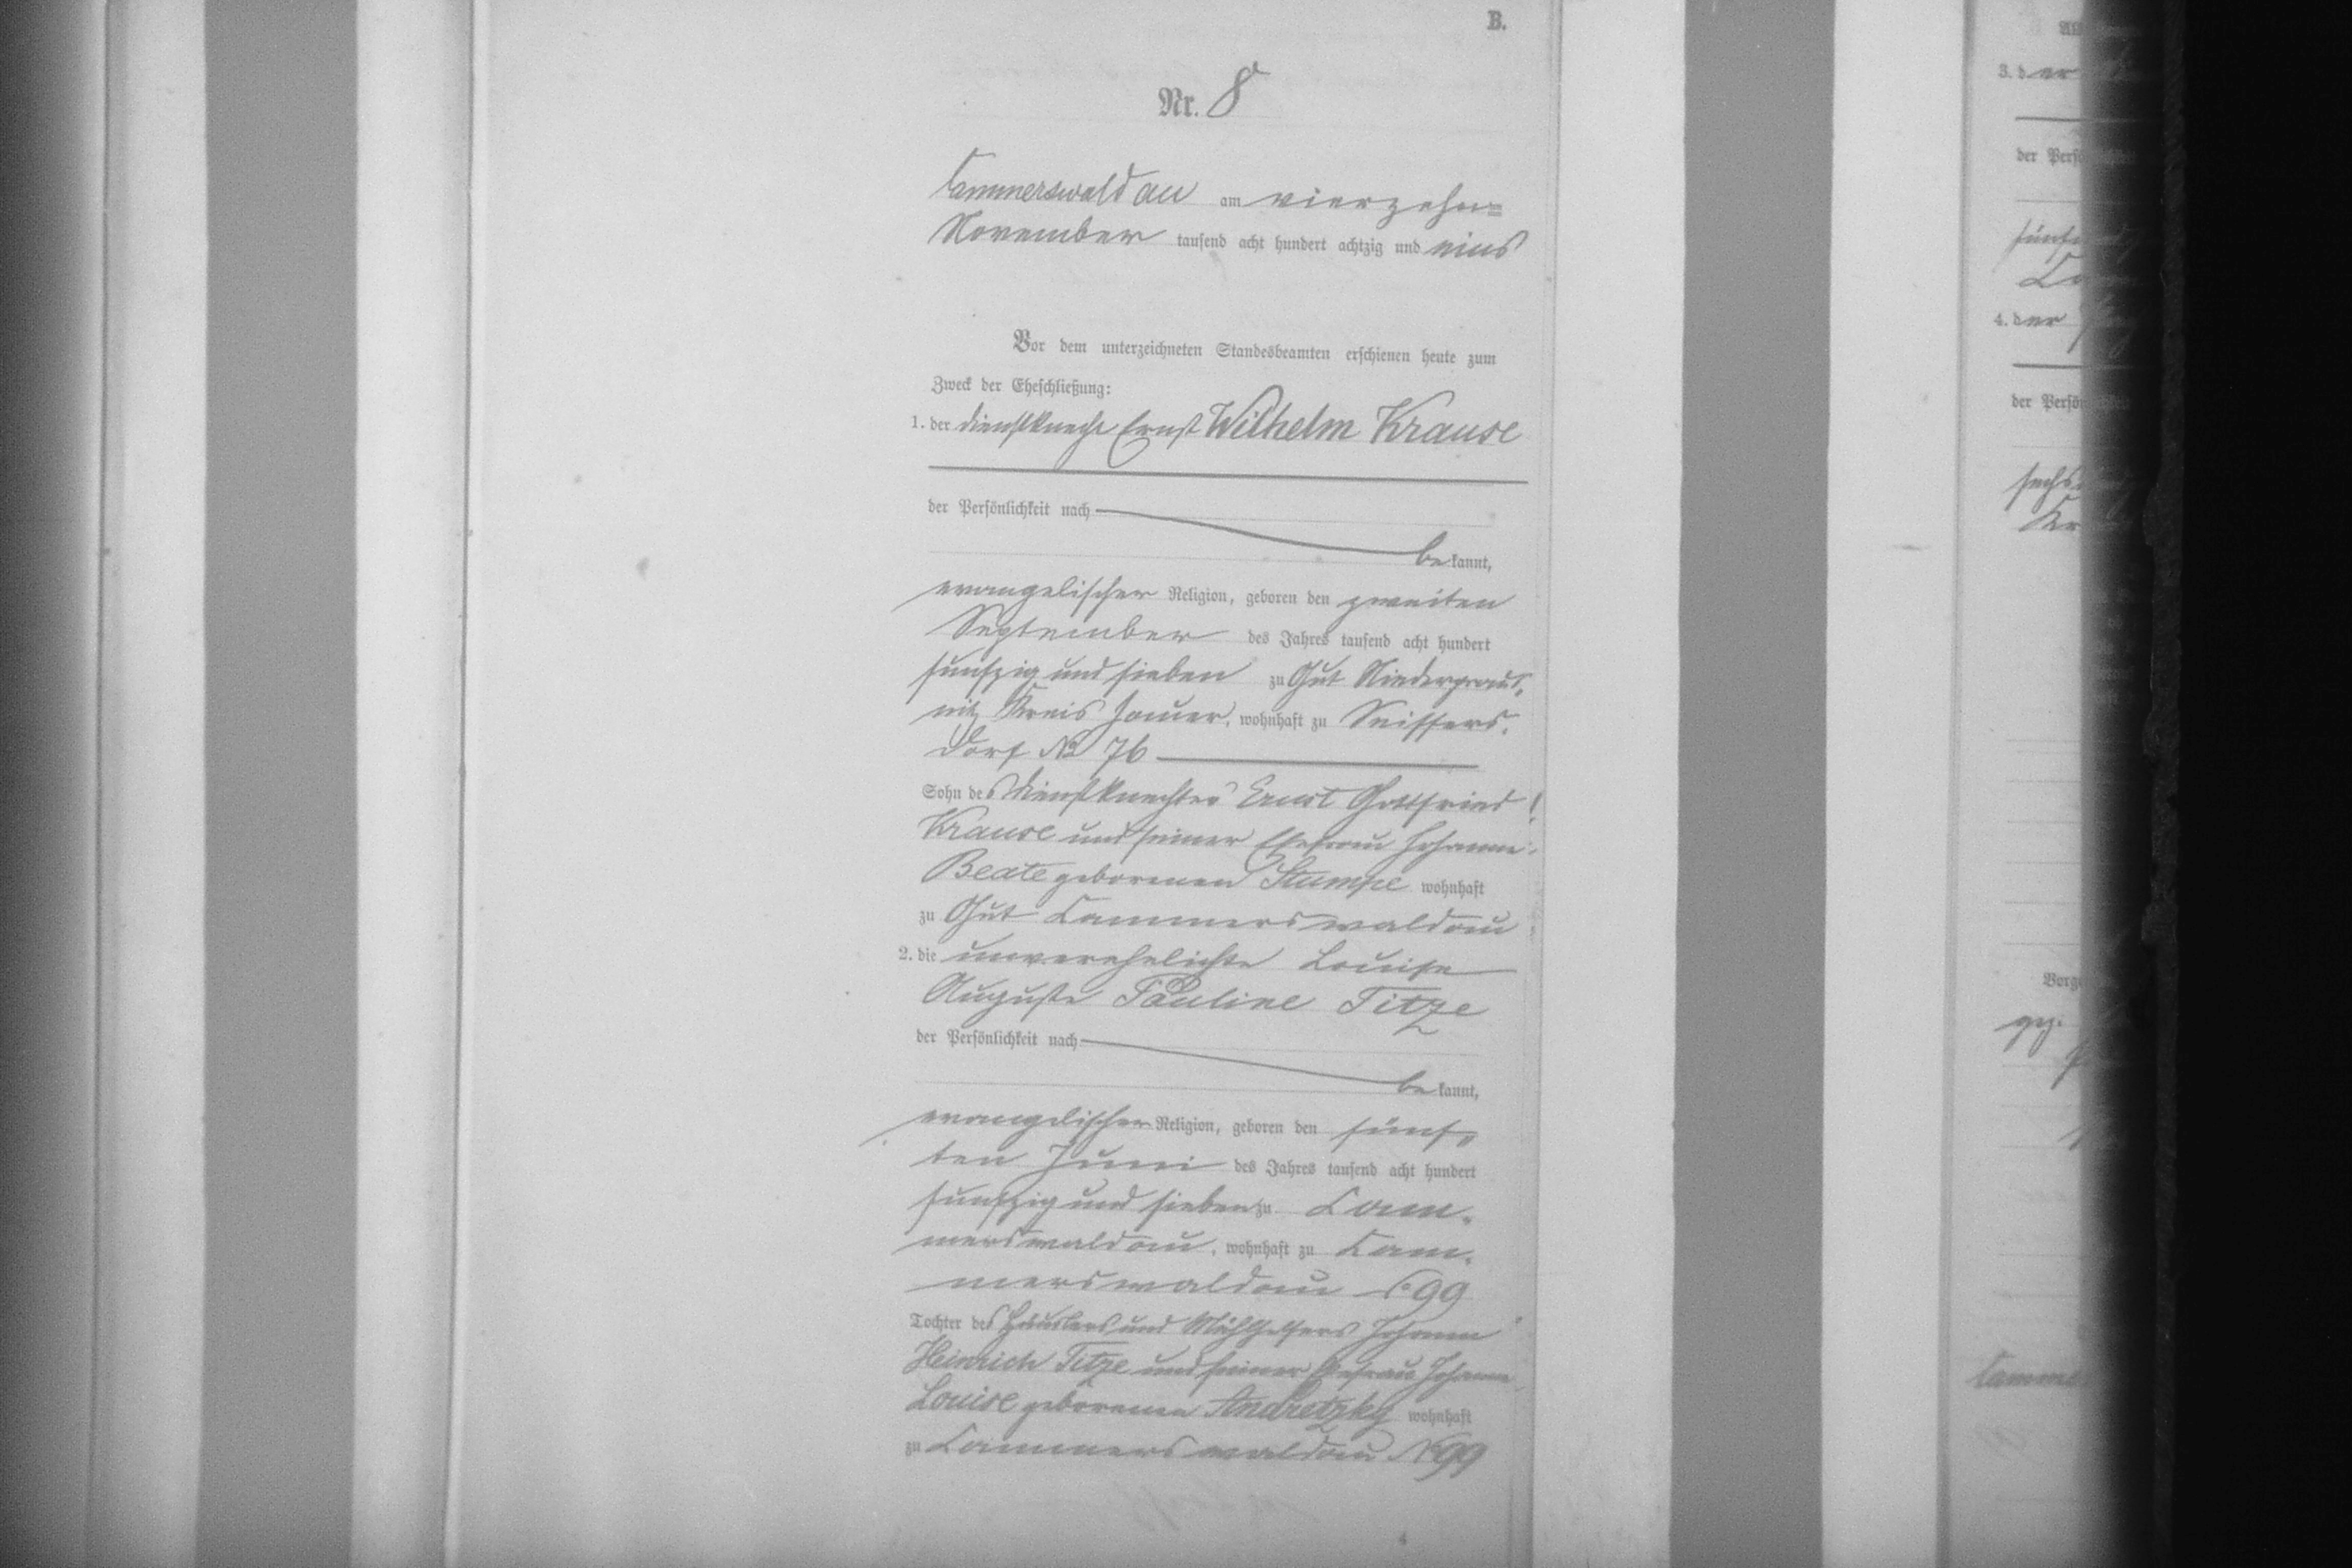 B.
Nr. 8
Cammerswaldau am vierzehn=
November tausend acht hundert achtzig und eins
Vor dem unterzeichneten Standesbeamten erschienen heute zum
Zweck der Eheschließung:
1. der Dienstknecht Ernst Wilhelm Krause
der Persönlichkeit nach
be kannt,
evangelischer Religion, geboren den zweiten
September des Jahres tausend acht hundert
funfzig und sieben zu Gut
nitz Kreis Jauer, wohnhaft zu Seiffers-
dorf No 76
Sohn des Dienstknechtes Ernst Gottfried
Krause und seiner Ehefrau Johanne
Beate geborenen Stumpe wohnhaft
zu Gut Cammerswaldau
2. die unverehelichte Louise
Auguste Pauline Titze
der Persönlichkeit nach
be kannt,
evangelischer Religion, geboren den fünf„
ten Juni des Jahres tausend acht hundert
funfzig und sieben zu Cam-
merswaldau, wohnhaft zu Cam-
merswaldau No 99
Tochter des Häuslers und Johann
Heinrich Titze und seiner Ehefrau Johanne
Louise geborenen Andretzky wohnhaft
zu Cammerswaldau No 99
4
3. der
der Pers
fünf
Ca
4. der
der Persö
sechs
Kr
Vorge
Camme